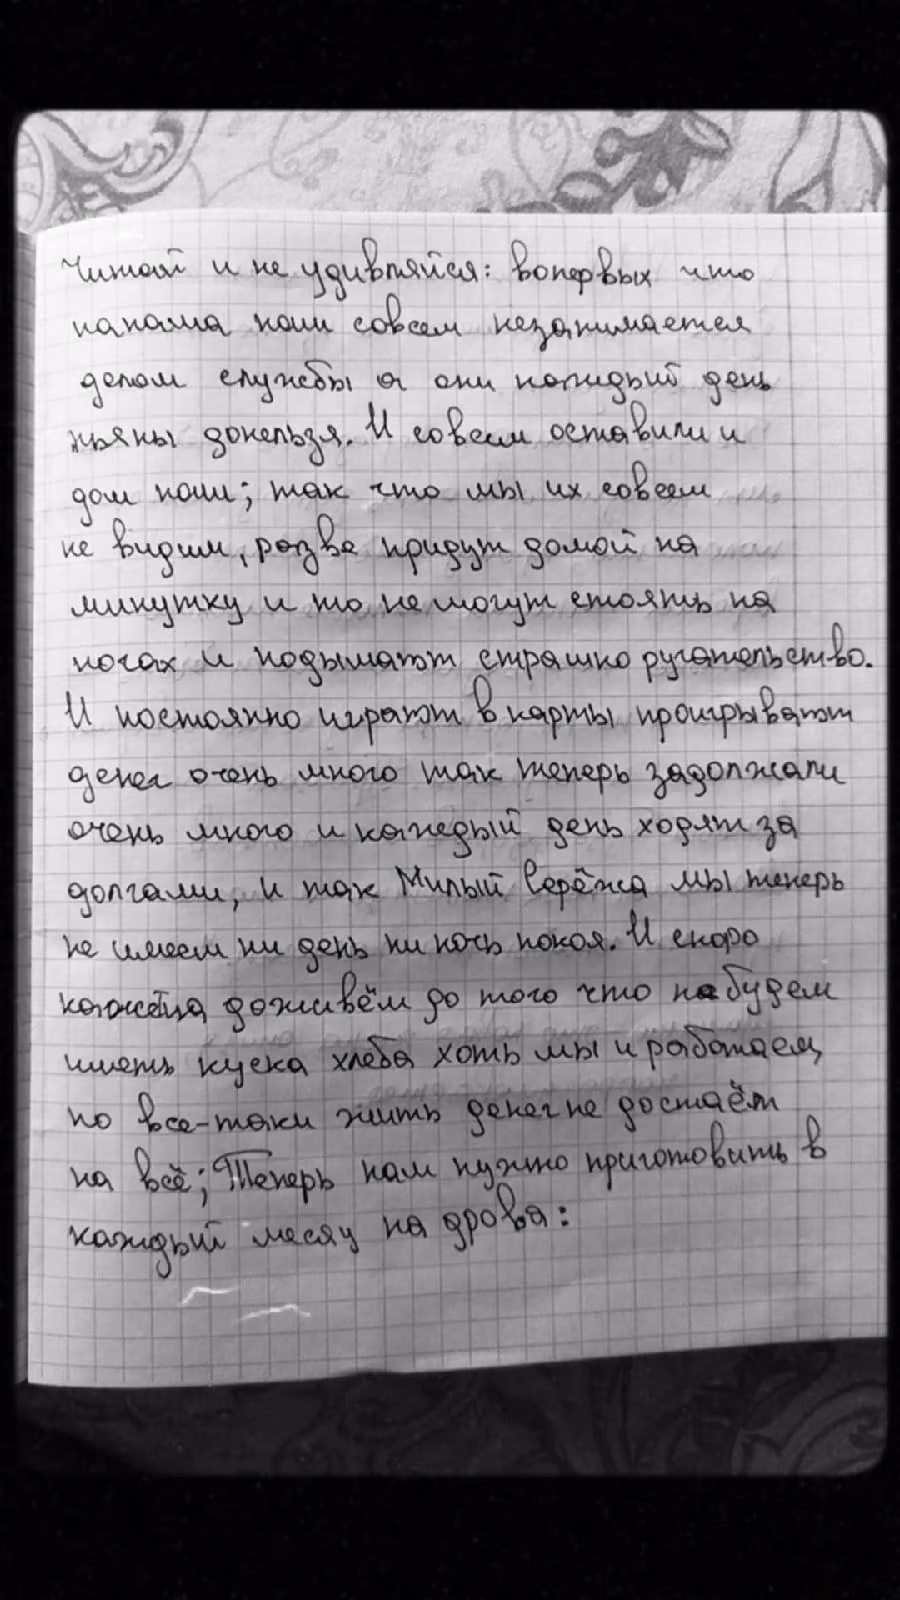 Читай и не удивляйся: вопервых что
папаша наш совсем незанимается
делом службы а они каждый день
пьяны донельзя. И совсем оставили и
дом наш; так что мы их совсем
не видим, разве придут домой на
минутку и то не могут стоять на
ногах и подымают страшно ругательство.
И постоянно играют в карты проигрывают
денег очень много так теперь задолжали
очень много и каждый день ходят за
долгами, и так Милый Серёжа мы теперь
не имеем ни день ни ночь покоя. И скоро
кажетца доживём до того что небудем
иметь куска хлеба хоть мы и работаем,
но все-таки жить денег не достаёт
на всё; Теперь нам нужно приготовить в
каждый месяц на дрова: